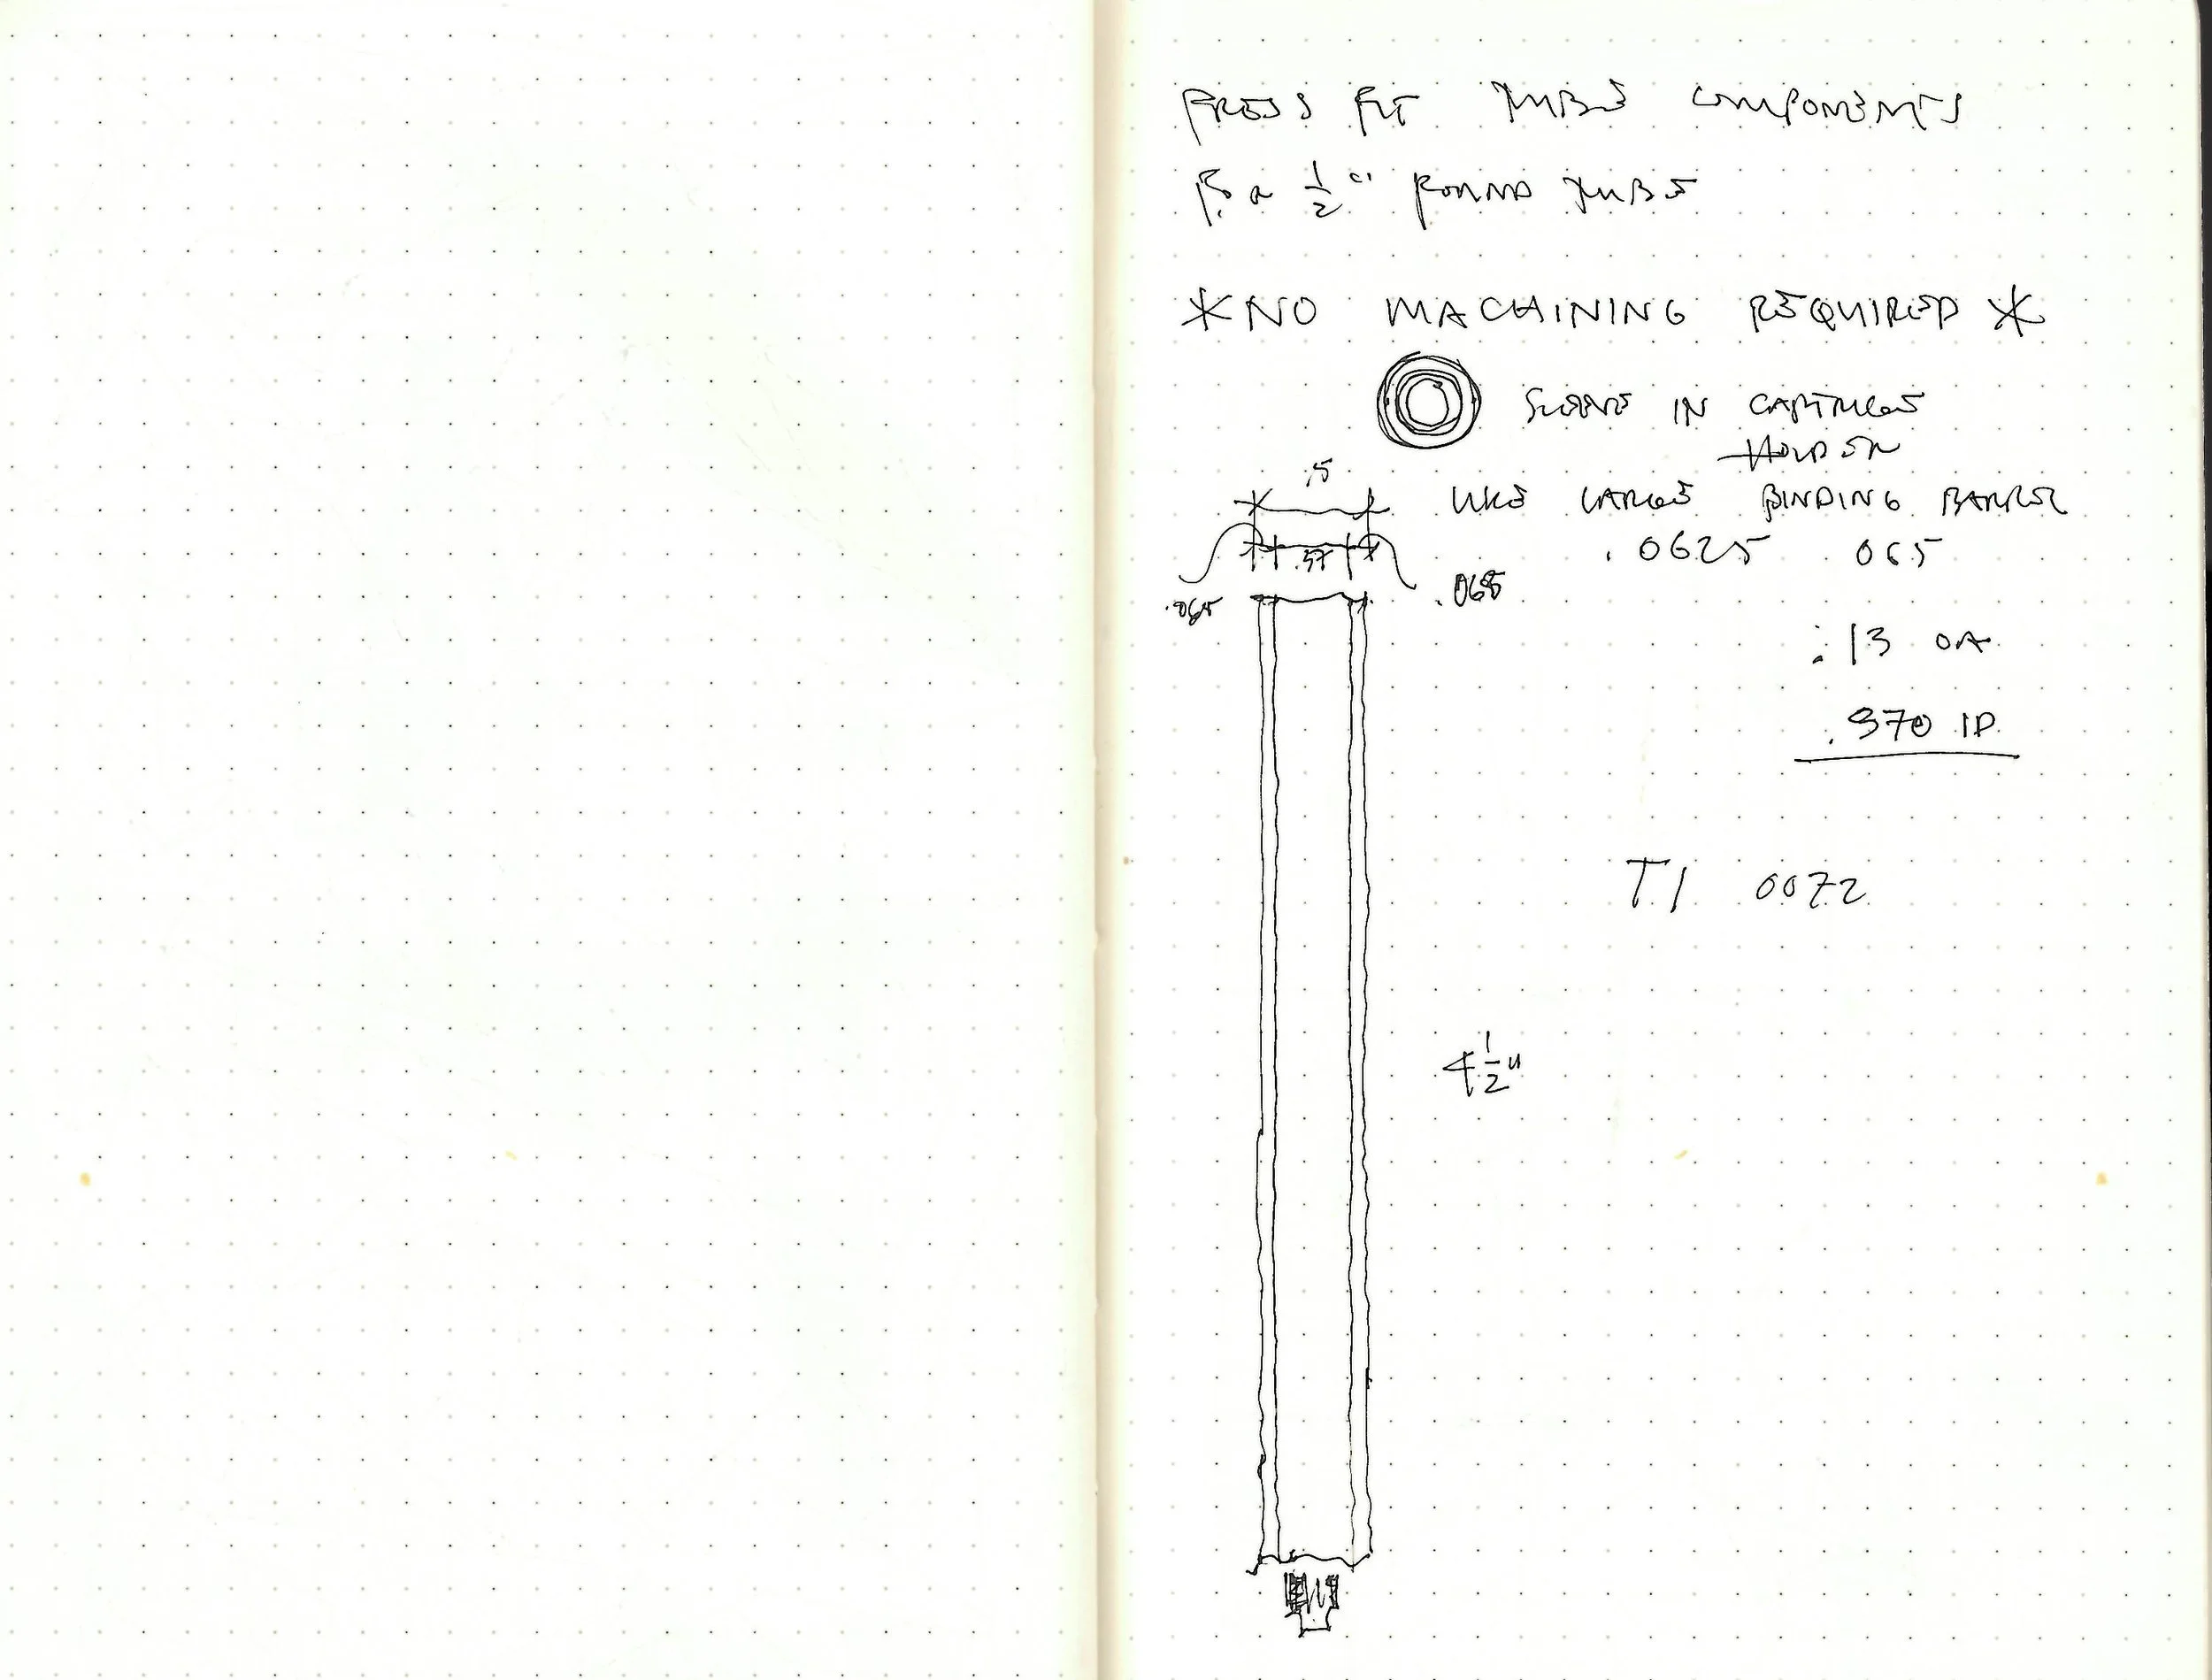 PRESS FIT TUBE COMPONENTS
FOR A 1/2" ROUND TUBE
*NO MACHINING REQUIRED*
IN CARTRIDGE
HOLDER
LIKE LARGE BINDING BARREL
.5
.0625 .065
.37
.065
.065
.13 OA
.370 ID
TI 0072
4 1/2"